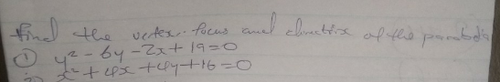 Find the vertex, focus and directrix of the parabola
① y² - 6y - 2x + 19 = 0
② x² + 4x + 4y + 16 = 0